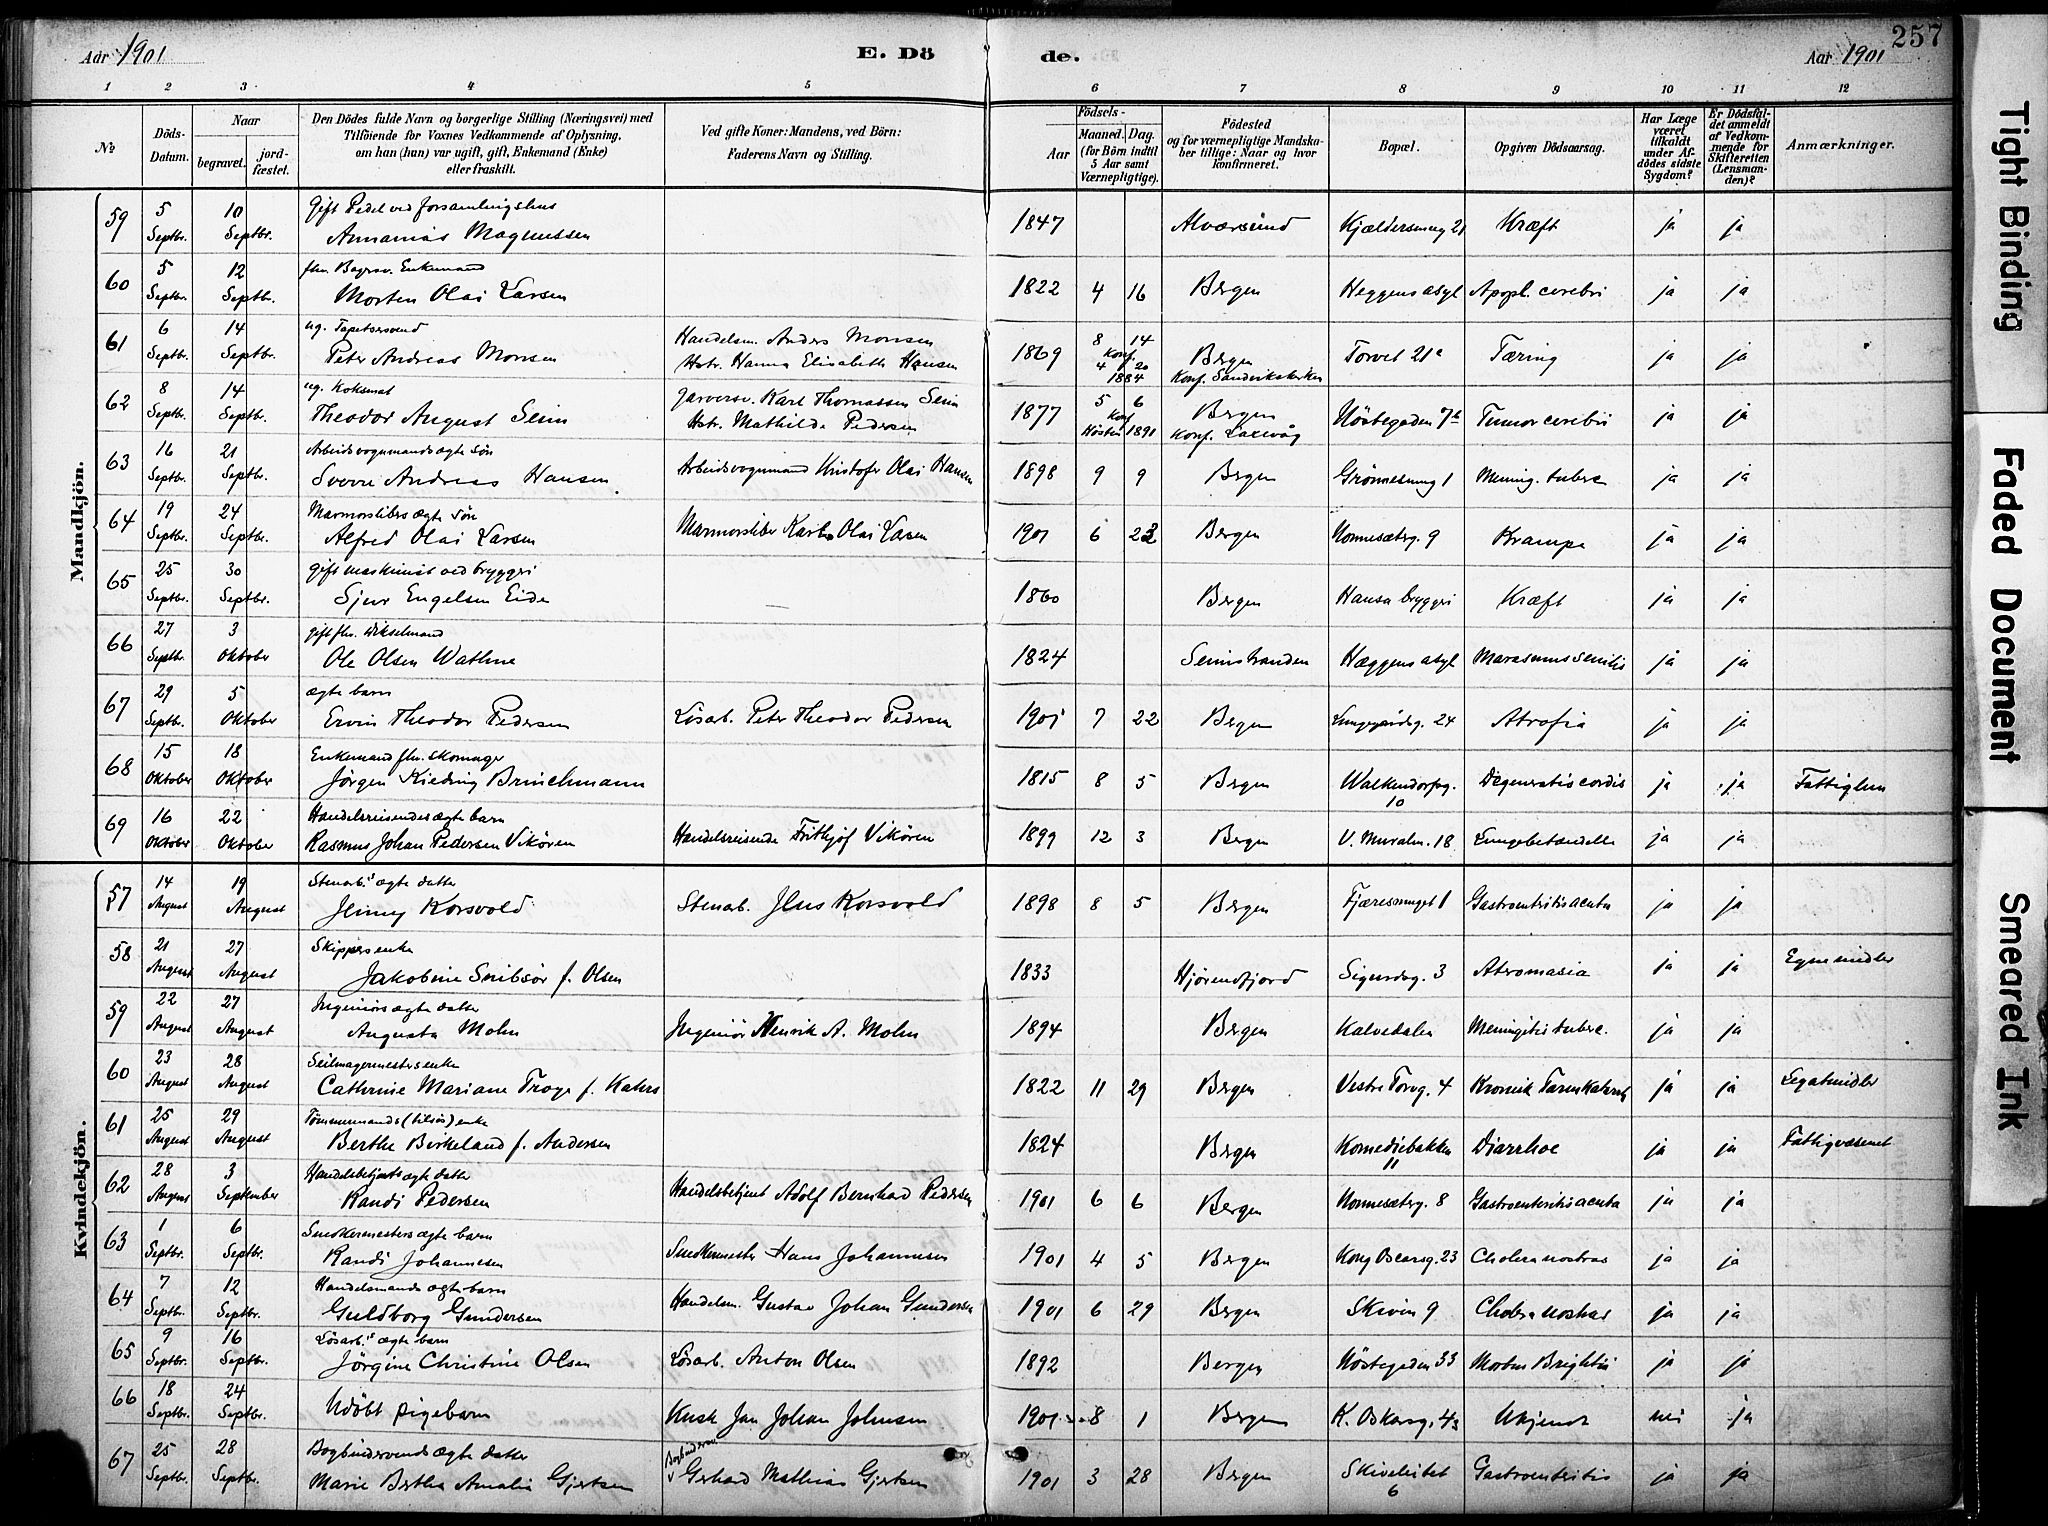 Aar 1901 E. Döde. Aar 1901 257
1 2 3 4 5 6 7 8 9 10 11 12
№ Döds-Datum. Naar begravet. jordfæstet. Den Dödes fulde Navn og borgerlige Stilling (Næringsvei) med Tilföiende for Voxnes Vedkommende af Oplysning, om han (hun) var ugift, gift, Enkemand (Enke) eller fraskilt. Ved gifte Koner: Mandens, ved Börn: Faderens Navn og Stilling. Födsels- Aar Maaned. Dag. (for Börn indtil 5 Aar samt Værnepligtige). Födested og for værnepligtige Mandskaber tillige: Naar og hvor konfirmeret. Bopæl. Opgiven Dödsaarsag. Har Læge været tilkaldt under Afdödes sidste Sygdom? Er Dödsfaldet anmeldt af Vedkommende for Skifteretten (Lensmanden)? Anmærkninger.
Mandkjön.
59 5 Septbr. 10 Septbr. Gift Pedel ved forsamlingshus Annanias Magnussen 1847 Alværsund Kjeldersmug 21 Kræft ja ja
60 5 Septbr. 12 Septbr. fhv. Bagersv. Enkemand Morten Olai Larsen 1822 4 16 Bergen Heggens asyl Apopl. cerebri ja ja
61 6 Septbr. 14 Septbr. ug. Tapetsersvend Peter Andreas Monsen Handelsm. Anders Monsen Hstr. Hanna Elisabeth Hansen 1869 8 14 Konf. 4 20 1884 Bergen Konf. Sandvikskirken Torvet 21a Tæring ja ja
62 8 Septbr. 14 Septbr. ug. Koksmat Theodor August Seim Farversv. Karl Thomassen Seim Hstr. Mathilde Pedersen 1877 5 6 Konf. Høsten 1891 Bergen Konf. Laxevåg Nöstegaden 7b Tumor cerebri ja ja
63 16 Septbr. 21 Septbr. Arbeidsvognmands ægte sön Sverre Andreas Hansen Arbeidsvognmand Kristofer Olai Hansen 1898 9 9 Bergen Grönnesmug 1 Mening. tuberc ja ja
64 19 Septbr. 24 Septbr. Marmorslibers ægte sön Alfred Olai Larsen Marmorsliber Karl Olai Larsen 1901 6 Bergen Nonnesæterg. 9 Krampe ja ja
65 25 Septbr. 30 Septbr. gift maskinist ved bryggeri Sjur Engelsen Eide 1860 Bergen Hansa bryggeri Kræft ja ja
66 27 Septbr. 3 Oktober gift fhv. Ole Olsen Wathne 1824 Seimstranden Hæggens asyl Marasmus senilis ja ja
67 29 Septbr. 5 Oktober ægte barn Ervin Theodor Pedersen Lösarb. Peter Theodor Pedersen 1901 7 22 Bergen Lungegårdsg. 24 Atrofia ja ja
68 15 Oktober 18 Oktober Enkemand fhv. skomager Jörgen Kieding Brinchmann 1815 8 5 Bergen Walkendorfsg. 10 Degeneratio cordis ja ja Fattiglem
69 16 Oktober 22 Oktober Handelsreisendes ægte barn Rasmus Johan Pedersen Vikören Handelsreisende Frithjof Vikören 1899 12 3 Bergen V. Muralm. 18 Lungebetændelse ja ja
Kvindekjön.
57 14 August 19 August Stenarb.s ægte datter Jenny Korsvold Stenarb. Jens Korsvold 1898 8 5 Bergen Fjæresmuget 1 Gastroenteritis acuta ja ja
58 21 August 27 August Skippers enke Jakobine Snibsör f. Olsen 1833 Hjörendfjord Sigurdsg. 3 ja ja Egne midler
59 22 August 27 August Ingeniörs ægte datter Augusta Mohn Ingeniör Henrik A. Mohn 1894 Bergen Kalvedalen Meningitis tuberc. ja ja
60 23 August 28 August Seilmagermesters enke Cathrine Mariane Troye f. Kahrs 1822 11 29 Bergen Vestre Torvg. 4 Kronisk Tarmkatarrh ja ja Legatmidler
61 25 August 29 August Tömmermands (tilsös) enke Berthe Birkeland f. Andersen 1824 Bergen Komediebakken 11 Diarrhoe ja ja Fattigvæsenet
62 28 August 3 September Handelsbetjents ægte datter Randi Pedersen Handelsbetjent Adolf Bernhard Pedersen 1901 6 6 Bergen Nonnesæterg. 8 Gastroenteritis acuta ja ja
63 1 Septbr. 6 Septbr. Snedkermesters ægte barn Randi Johannesen Snedkermester Hans Johannesen 1901 4 5 Bergen Kong Oscarsg. 23 Cholera nostras ja ja
64 7 Septbr. 12 Septbr. Handelsmands ægte barn Guldborg Gundersen Handelsm. Gustav Johan Gundersen 1901 6 29 Bergen Skiven 9 Cholera nostras ja ja
65 9 Septbr. 16 Septbr. Lösarb.s ægte barn Jörgine Christine Olsen Lösarb. Anton Olsen 1892 Bergen Nöstegaden 33 Morbus Brightii ja ja
66 18 Septbr. 24 Septbr. Udöbt pigebarn Kusk Jan Johan Johnsen 1901 8 1 Bergen K. Oskarsg. 43 Ukjendt nei ja
67 25 Septbr. 28 Septbr. Bogbindersvends ægte datter Marie Bertha Amalia Gjertsen Bogbindersv. Gerhard Mathias Gjertsen 1901 3 28 Bergen Skivebakken 6 Gastroenteritis ja ja
Tight Binding
Faded Document
Smeared Ink